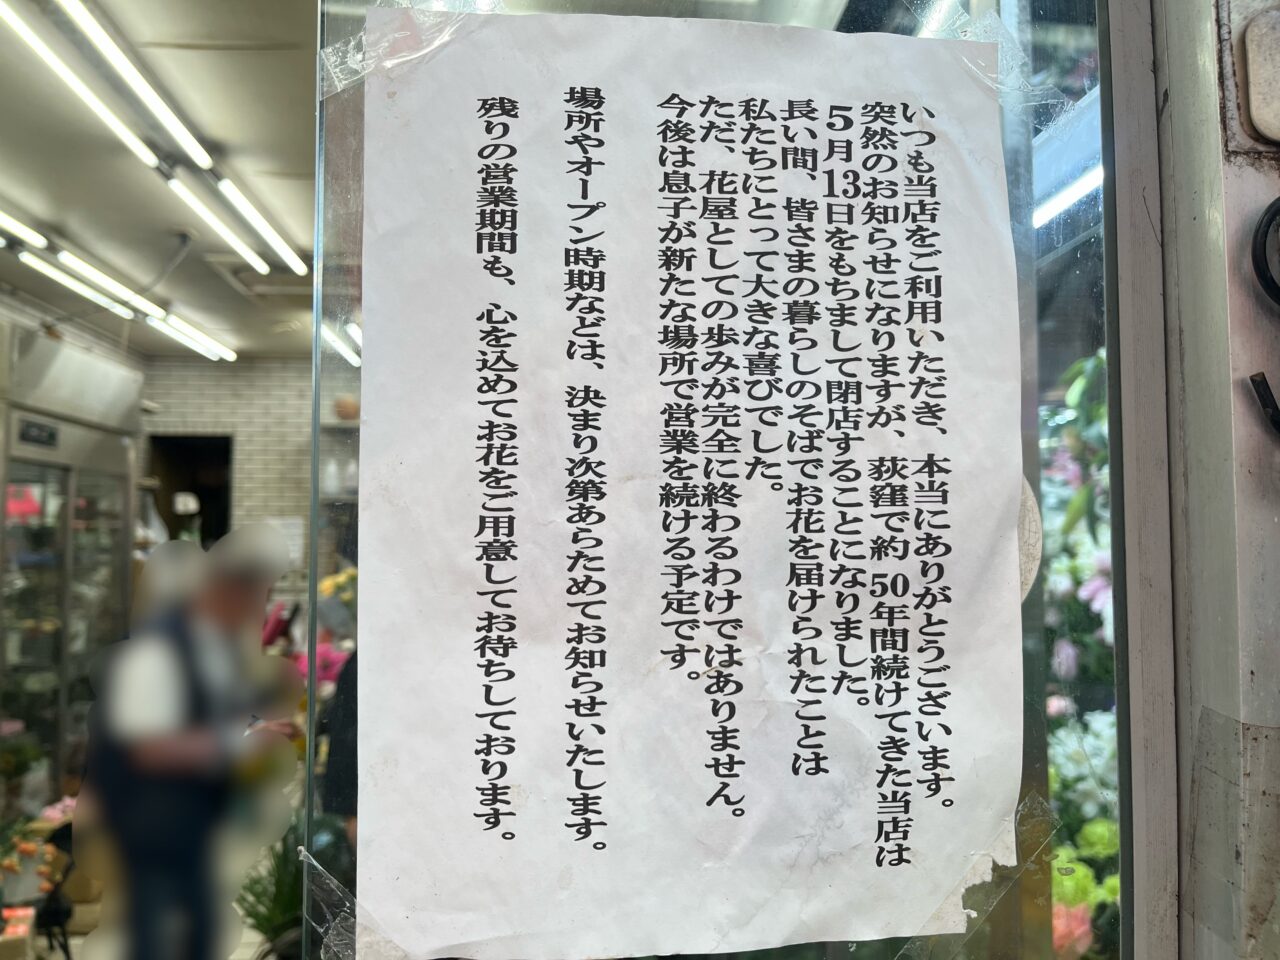 いつも当店をご利用いただき、本当にありがとうございます。
突然のお知らせになりますが、荻窪で約50年間続けてきた当店は
5月13日をもちまして閉店することになりました。
長い間、皆さまの暮らしのそばでお花を届けられたことは
私たちにとって大きな喜びでした。
ただ、花屋としての歩みが完全に終わるわけではありません。
今後は息子が新たな場所で営業を続ける予定です。
場所やオープン時期などは、決まり次第あらためてお知らせいたします。
残りの営業期間も、心を込めてお花をご用意してお待ちしております。